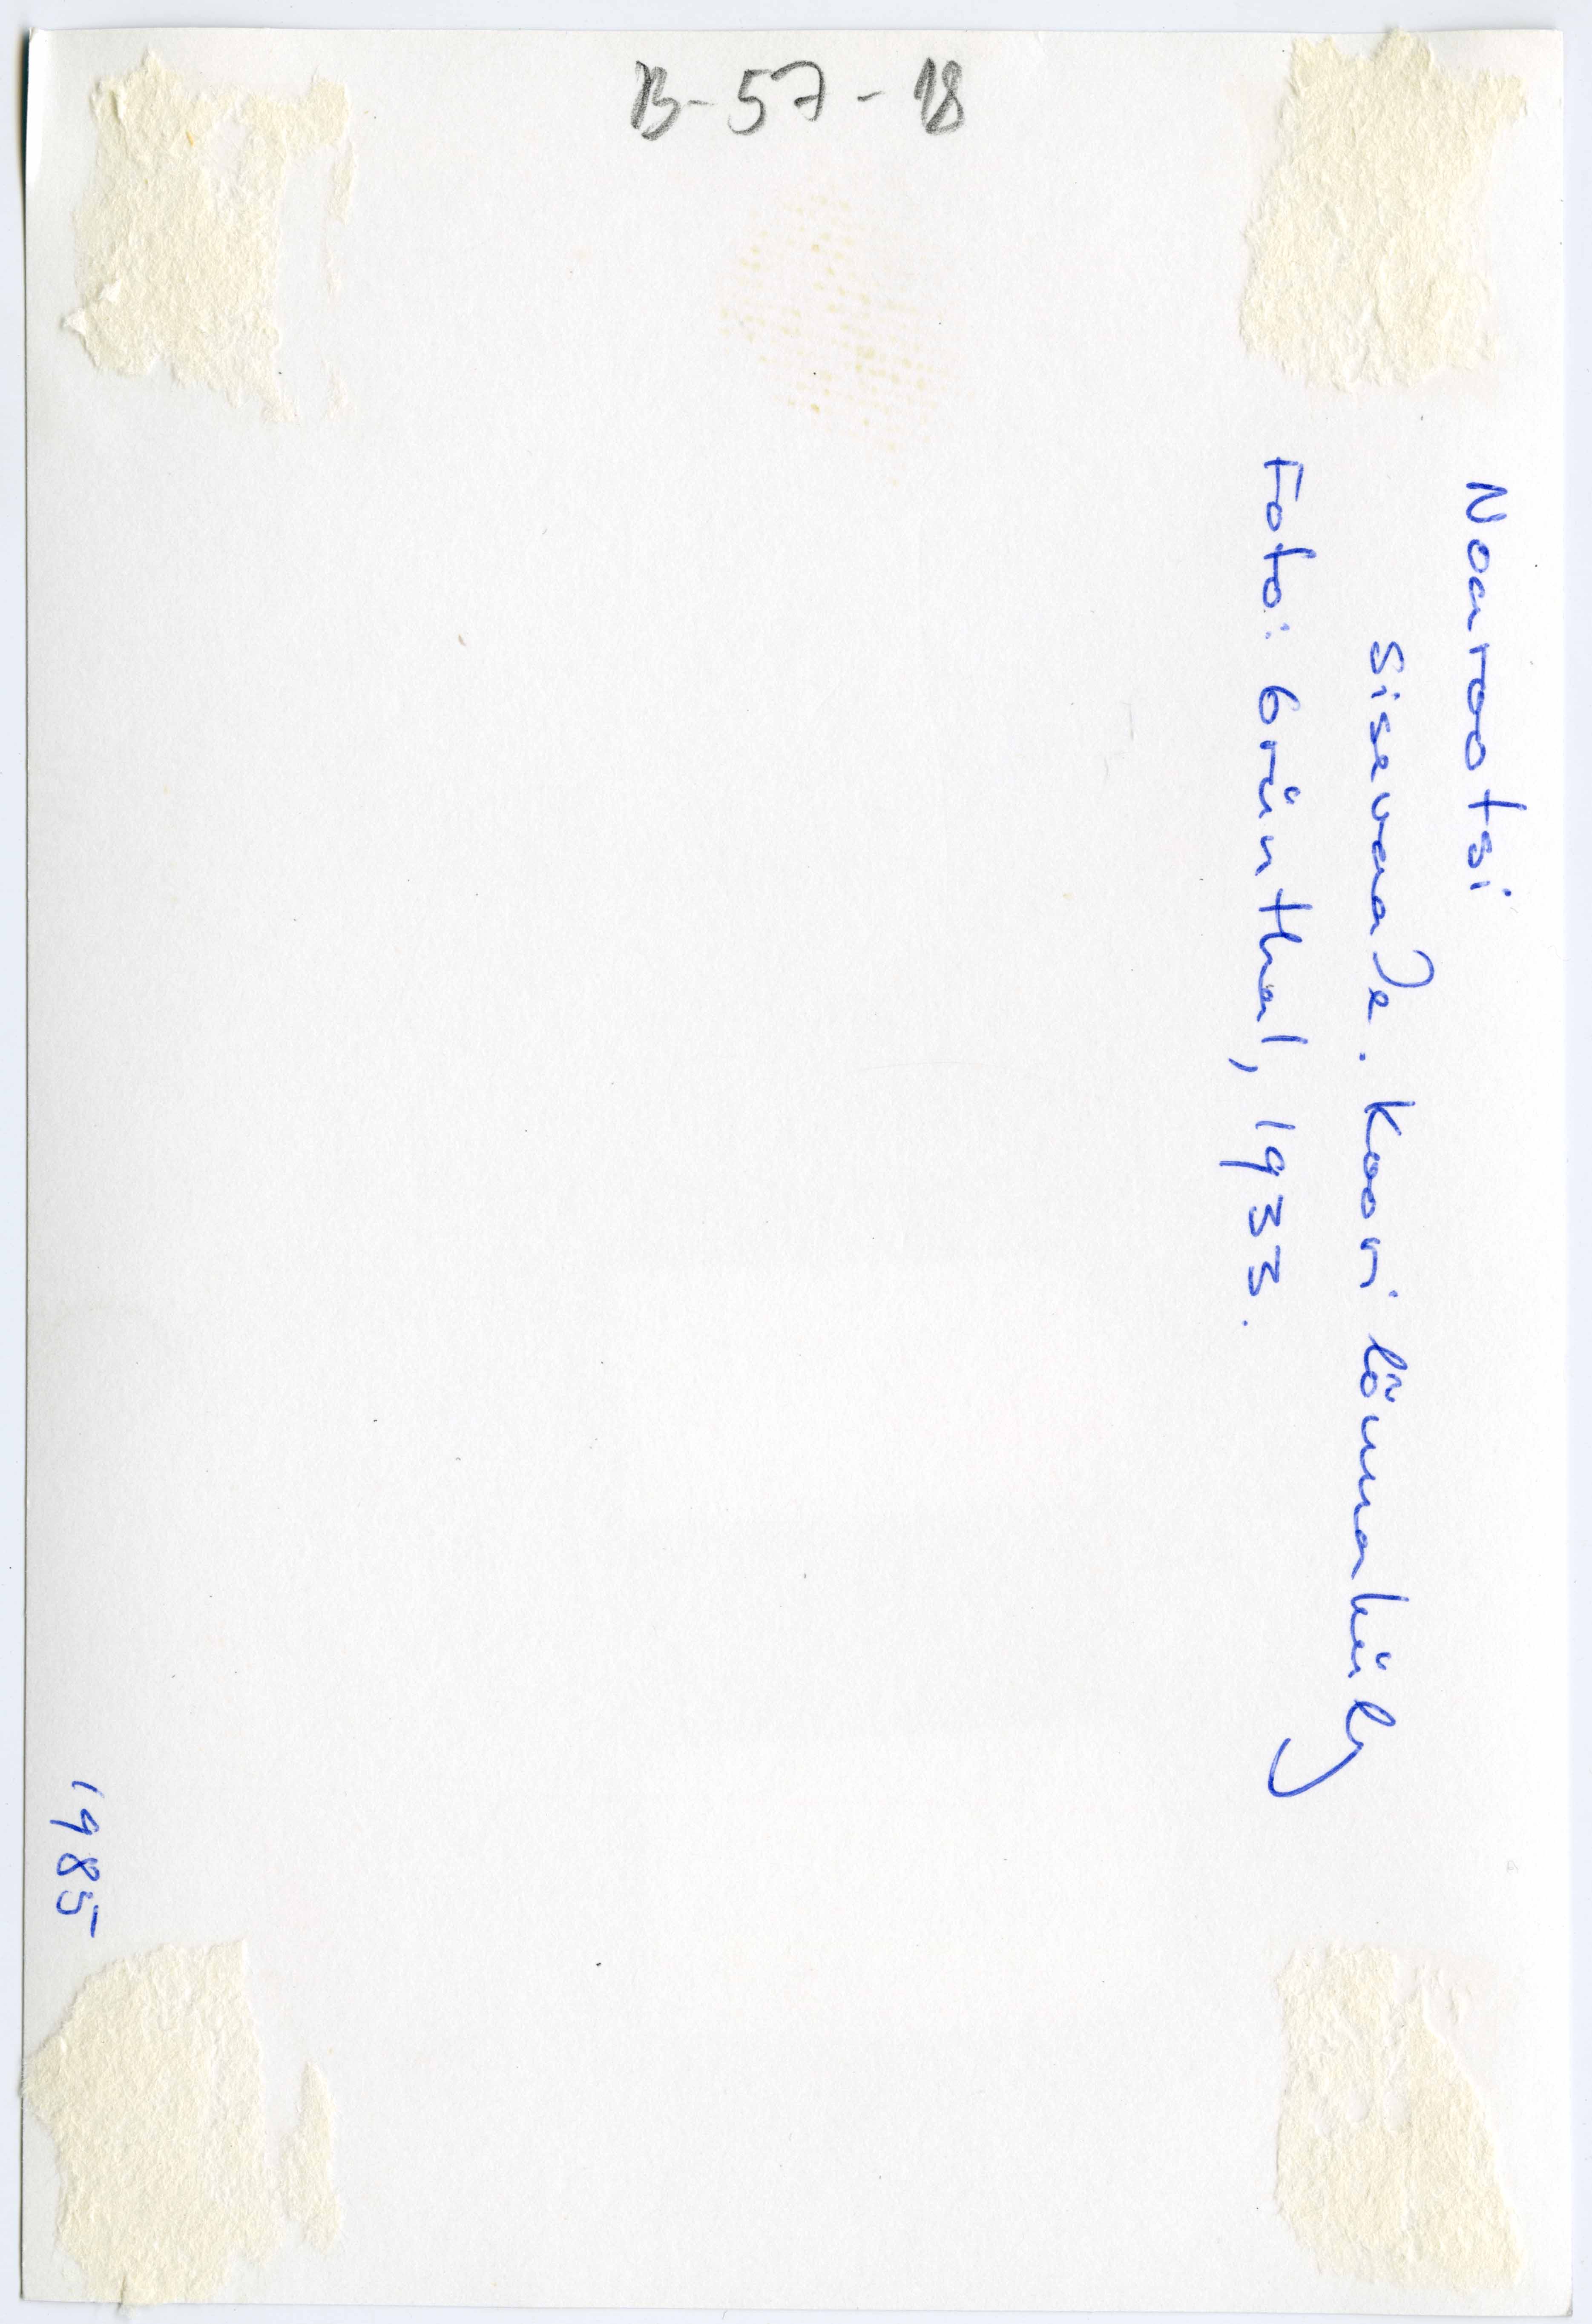 B-57-18
Noarootsi
Sisevaade. Koori lõunakülg
Foto: Grünthal, 1933.
1985